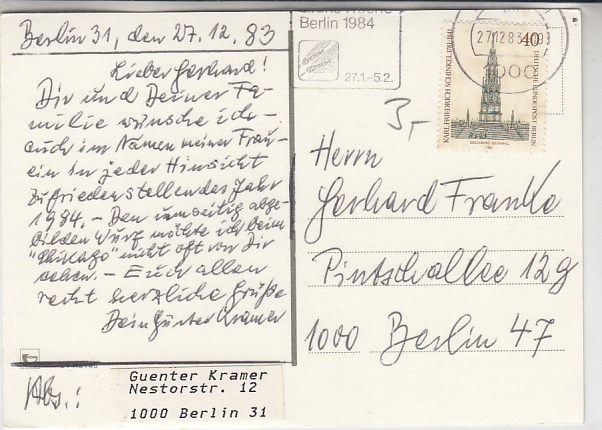 Berlin 31, den 27.12.83
Lieber Gerhard!
Dir und Deiner Fa-
milie wünsche ich -
auch im Namen meiner Frau -
ein in jeder Hinsicht
zufriedenstellendes Jahr
1984. - Den umseitig abge-
bildeten Wurf möchte ich beim
"Chicago" nicht oft von Dir
sehen. - Euch allen
recht herzliche Grüße
Dein Günter Kramer
Abs.:
Guenter Kramer
Nestorstr. 12
1000 Berlin 31
Grüne Woche
Berlin 1984
Grüne
Woche
27.1.-5.2.
27.12.83
1000
40
KARL FRIEDRICH SCHINKEL
DEUTSCHE BUNDESPOST BERLIN
3,-
Herrn
Gerhard Franke
Pintschallee 12g
1000 Berlin 47